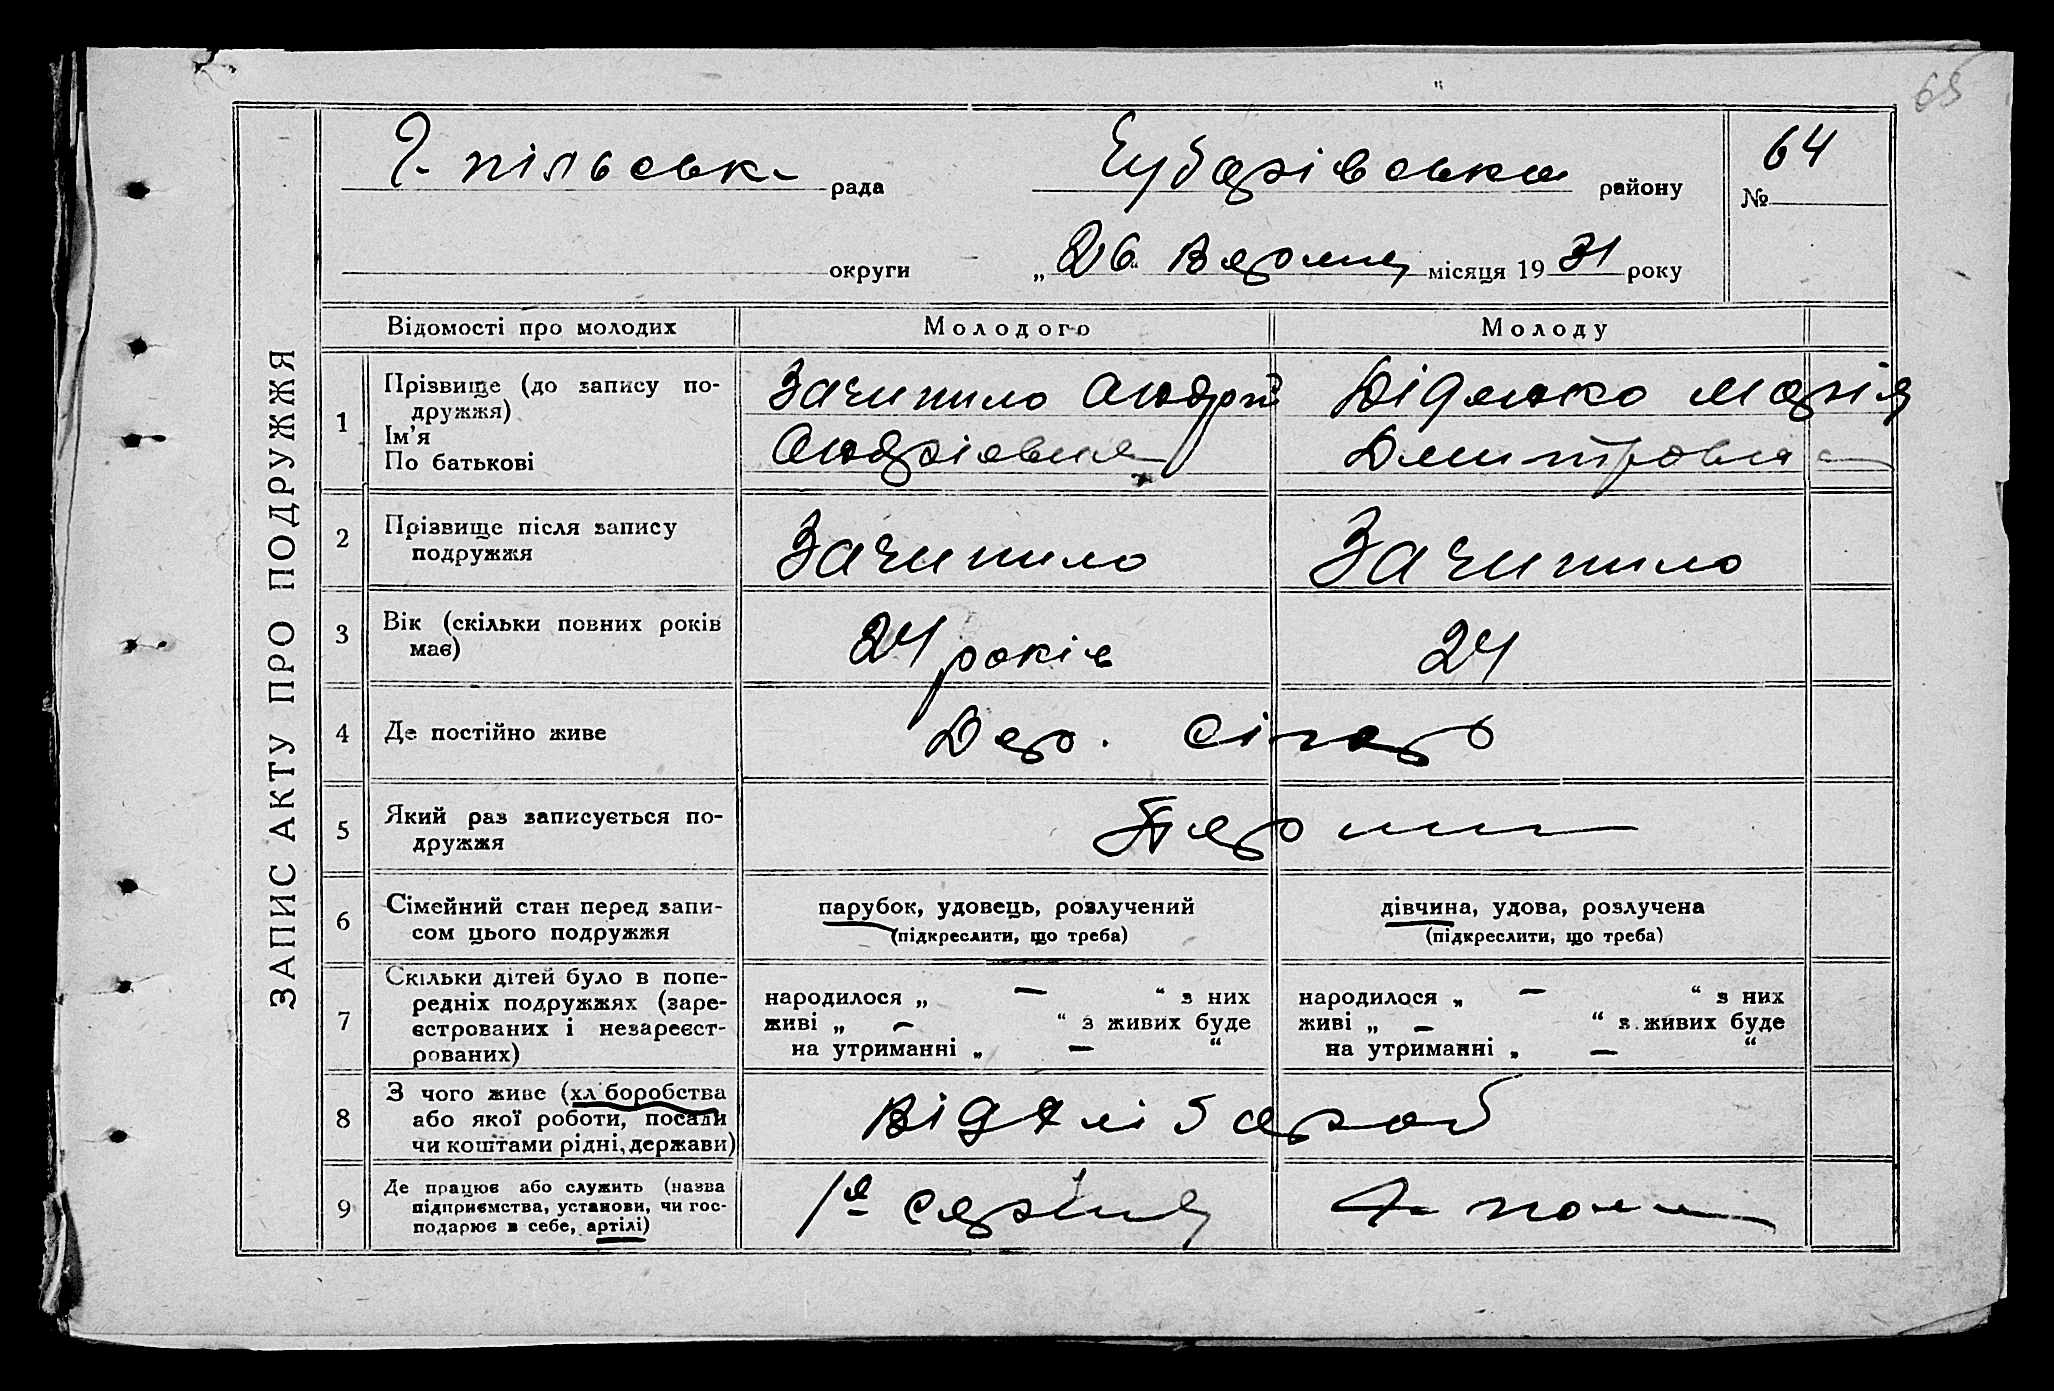 65
Г. пільськ. рада
Чубарівська району
№ 64
округи
„26“ Вересня місяця 1931 року
ЗАПИС АКТУ ПРО ПОДРУЖЖЯ
Відомості про молодих
Молодого
Молоду
1
Прізвище (до запису по-
дружжя)
Ім'я
По батькові
Зачипило Андрій
Андрієвич
Діденко Марія
Дмитровна
2
Прізвище після запису
подружжя
Зачипило
Зачипило
3
Вік (скільки повних років
має)
24 років
24
4
Де постійно живе
Дер.
5
Який раз записується по-
дружжя
Перший
6
Сімейний стан перед запи-
сом цього подружжя
парубок, удовець, розлучений
(підкреслити, що треба)
дівчина, удова, розлучена
(підкреслити, що треба)
7
Скільки дітей було в попе-
редніх подружжях (заре-
єстрованих і незареєст-
рованих)
народилося „ — “ з них
живі „ — “ з живих буде
на утриманні „ — “
народилося „ — “ з них
живі „ — “ з живих буде
на утриманні „ — “
8
З чого живе (хліборобства
або якої роботи, посади
чи коштами рідні, держави)
Від хліборобс
9
Де працює або служить (назва
підприємства, установи, чи гос-
подарює в себе, артілі)